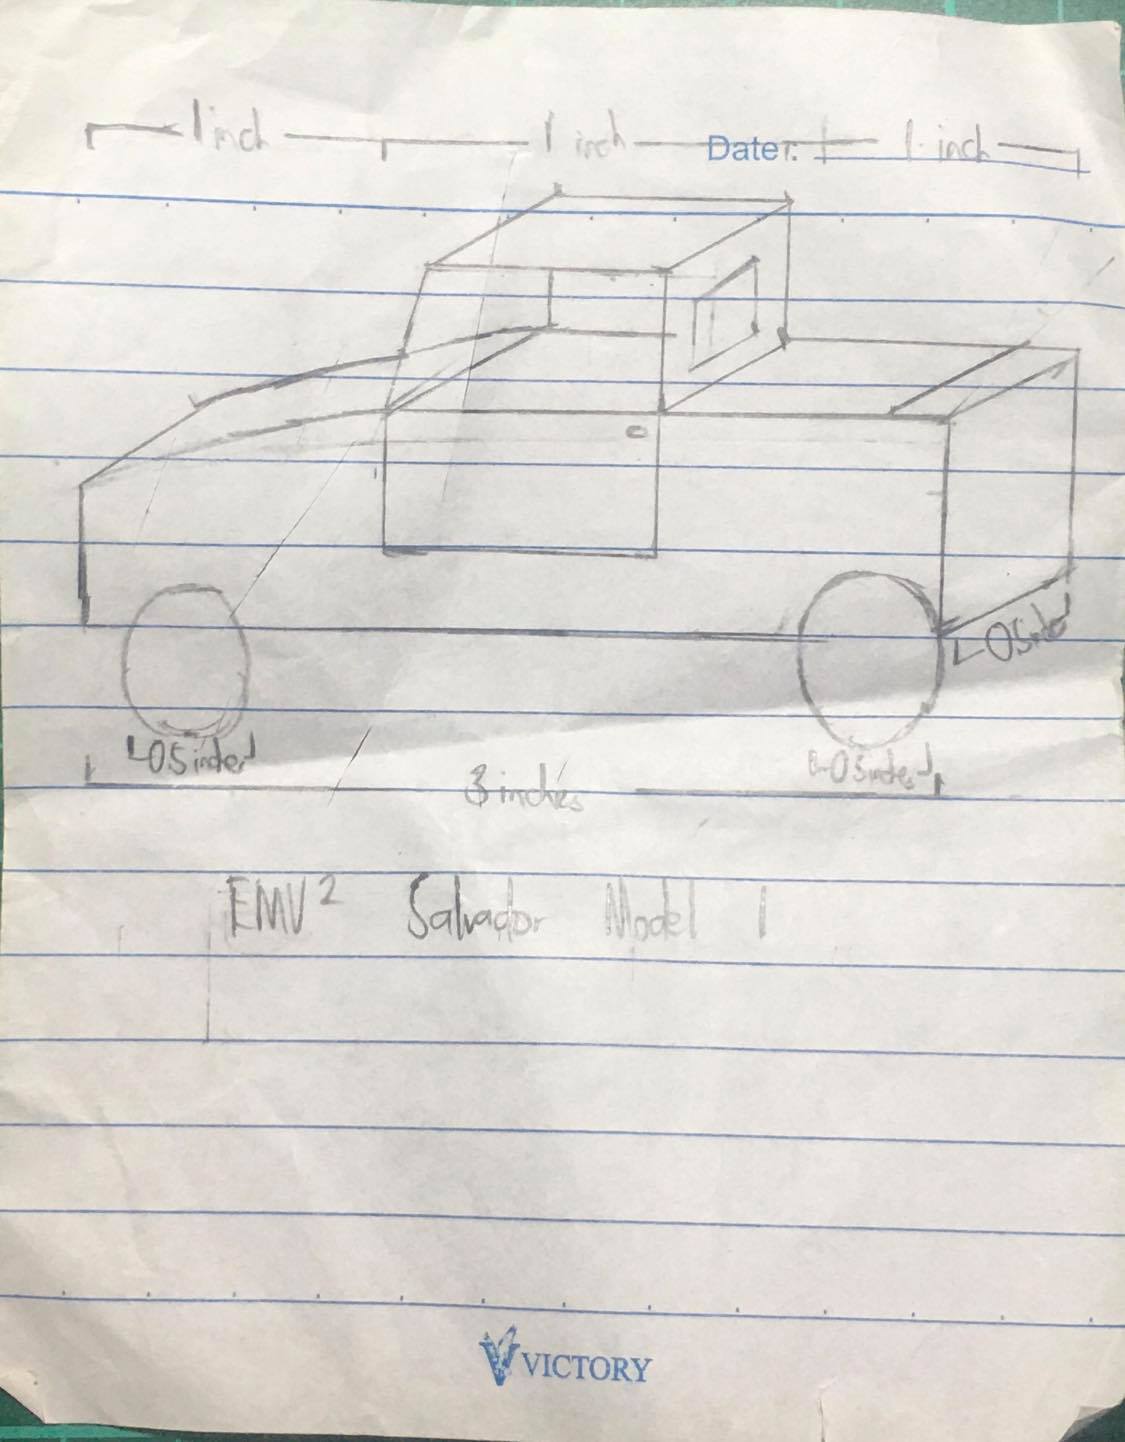 1 inch 1 inch 1 inch
Date:
0.5 inches
0.5 inches 0.5 inches
3 inches
EMV² Salvador Model 1
VICTORY